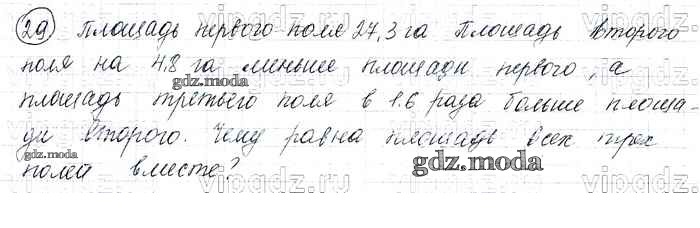 29 Площадь первого поля 27,3 га Площадь второго
поля на 4.8 га меньше площади первого, а
площадь третьего поля в 1.6 раза больше площа-
ди второго. Чему равна площадь всех трех
полей вместе?
gdz.moda
gdz.moda
vipadz.ru